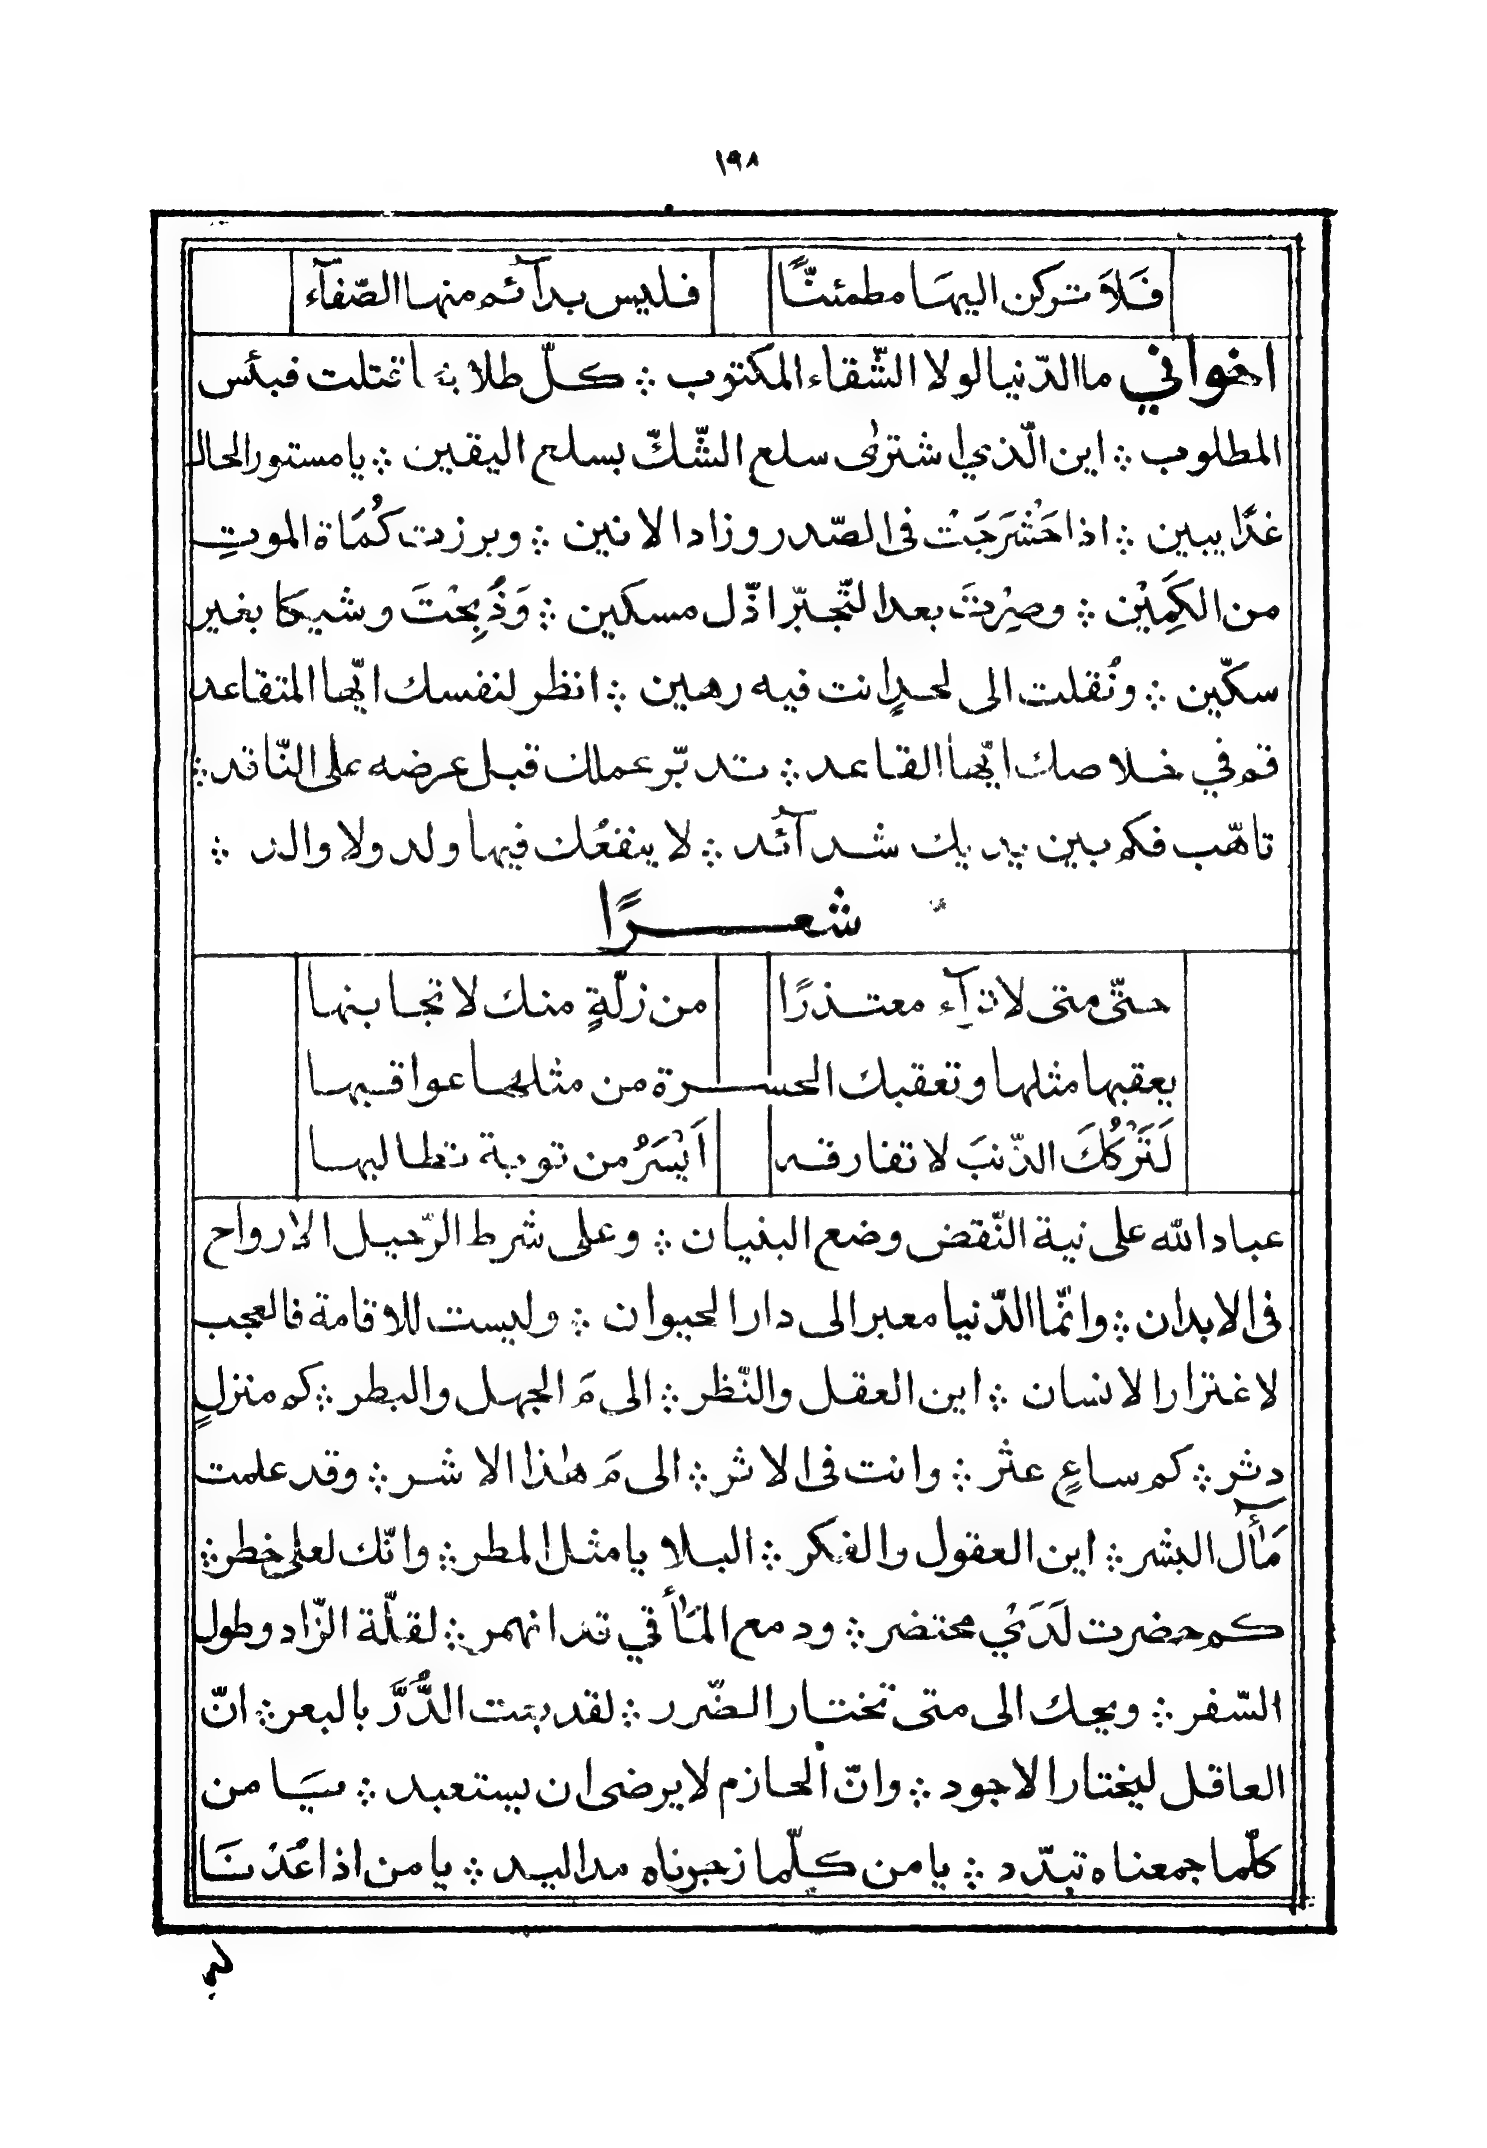 ١٩٨
فَلاَ تركن اليهَا مطمئنًّا فليس بدآئم منها الصّفآء
اخواني ما الدّنيا لولا الشّقاء المكتوب ؞ كلّ طلابه اغتلت فبئس
المطلوب ؞ اين الّذي اشترٰى سلع الشّكّ بسلع اليقين ؞ يا مستور الحال
غدًا يبين ؞ اذا حَشْرَجَتْ فى الصّدر وزاد الانين ؞ وبرزت كُمَاة الموتِ
من الكَمِيْن ؞ وصِرْتَ بعد التّجبّر اذّل مسكين ؞ وَذُبِحْتَ وشيكا بغير
سكّين ؞ ونُقلت الى لحدٍ انت فيه رهين ؞ انظر لنفسك ايّها المتقاعد
قم في خلاصك ايّها القاعد ؞ تدبّر عملك قبل عرضه على النّاقد ؞
تاهّب فكم بين يديك شدآئد ؞ لا ينفعُك فيها ولد ولا والد ؞
شعرًا
حتّى متى لا تزآء معتذرًا من زلّةٍ منك لا تجابنها
يعقبها مثلها وتعقبك الحسرة من مثلها عواقبها
لَتَرْكُكَ الذّنبَ لا تفارقه اَيْسَرُ من توبة تطالبها
عباد الله على نية النّقض وضع البنيان ؞ وعلى شرط الرّحيل الارواح
فى الابدان ؞ وانّما الدّنيا معبر الى دار الحيوان ؞ وليست للاقامة فالعجب
لاغترار الانسان ؞ اين العقل والنّظر ؞ الى مَ الجهل والبطر ؞ كم منزلٍ
دثر ؞ كم ساعٍ عثر ؞ وانت فى الاثر ؞ الى مَ هٰذا الاشر ؞ وقد علمت
مَاٰل البشر ؞ اين العقول والفكر ؞ البلا يا مثل المطر ؞ وانّك لعلى خطر ؞
كم حضرت لَدَيْ محتضر ؞ ودمع المَاٰقي قد انهمر ؞ لقلّة الزّاد وطول
السّفر ؞ ويحك الى متى تختار الضّرر ؞ لقد بِعت الدُّرَّ بالبعر ؞ انّ
العاقل ليختار الاجود ؞ وانّ الحازم لا يرضى ان يستعبد ؞ يَا من
كلّما جمعناه تبدّد ؞ يا من كلّما زجرناه مد اليد ؞ يا من اذا عُدْنَا